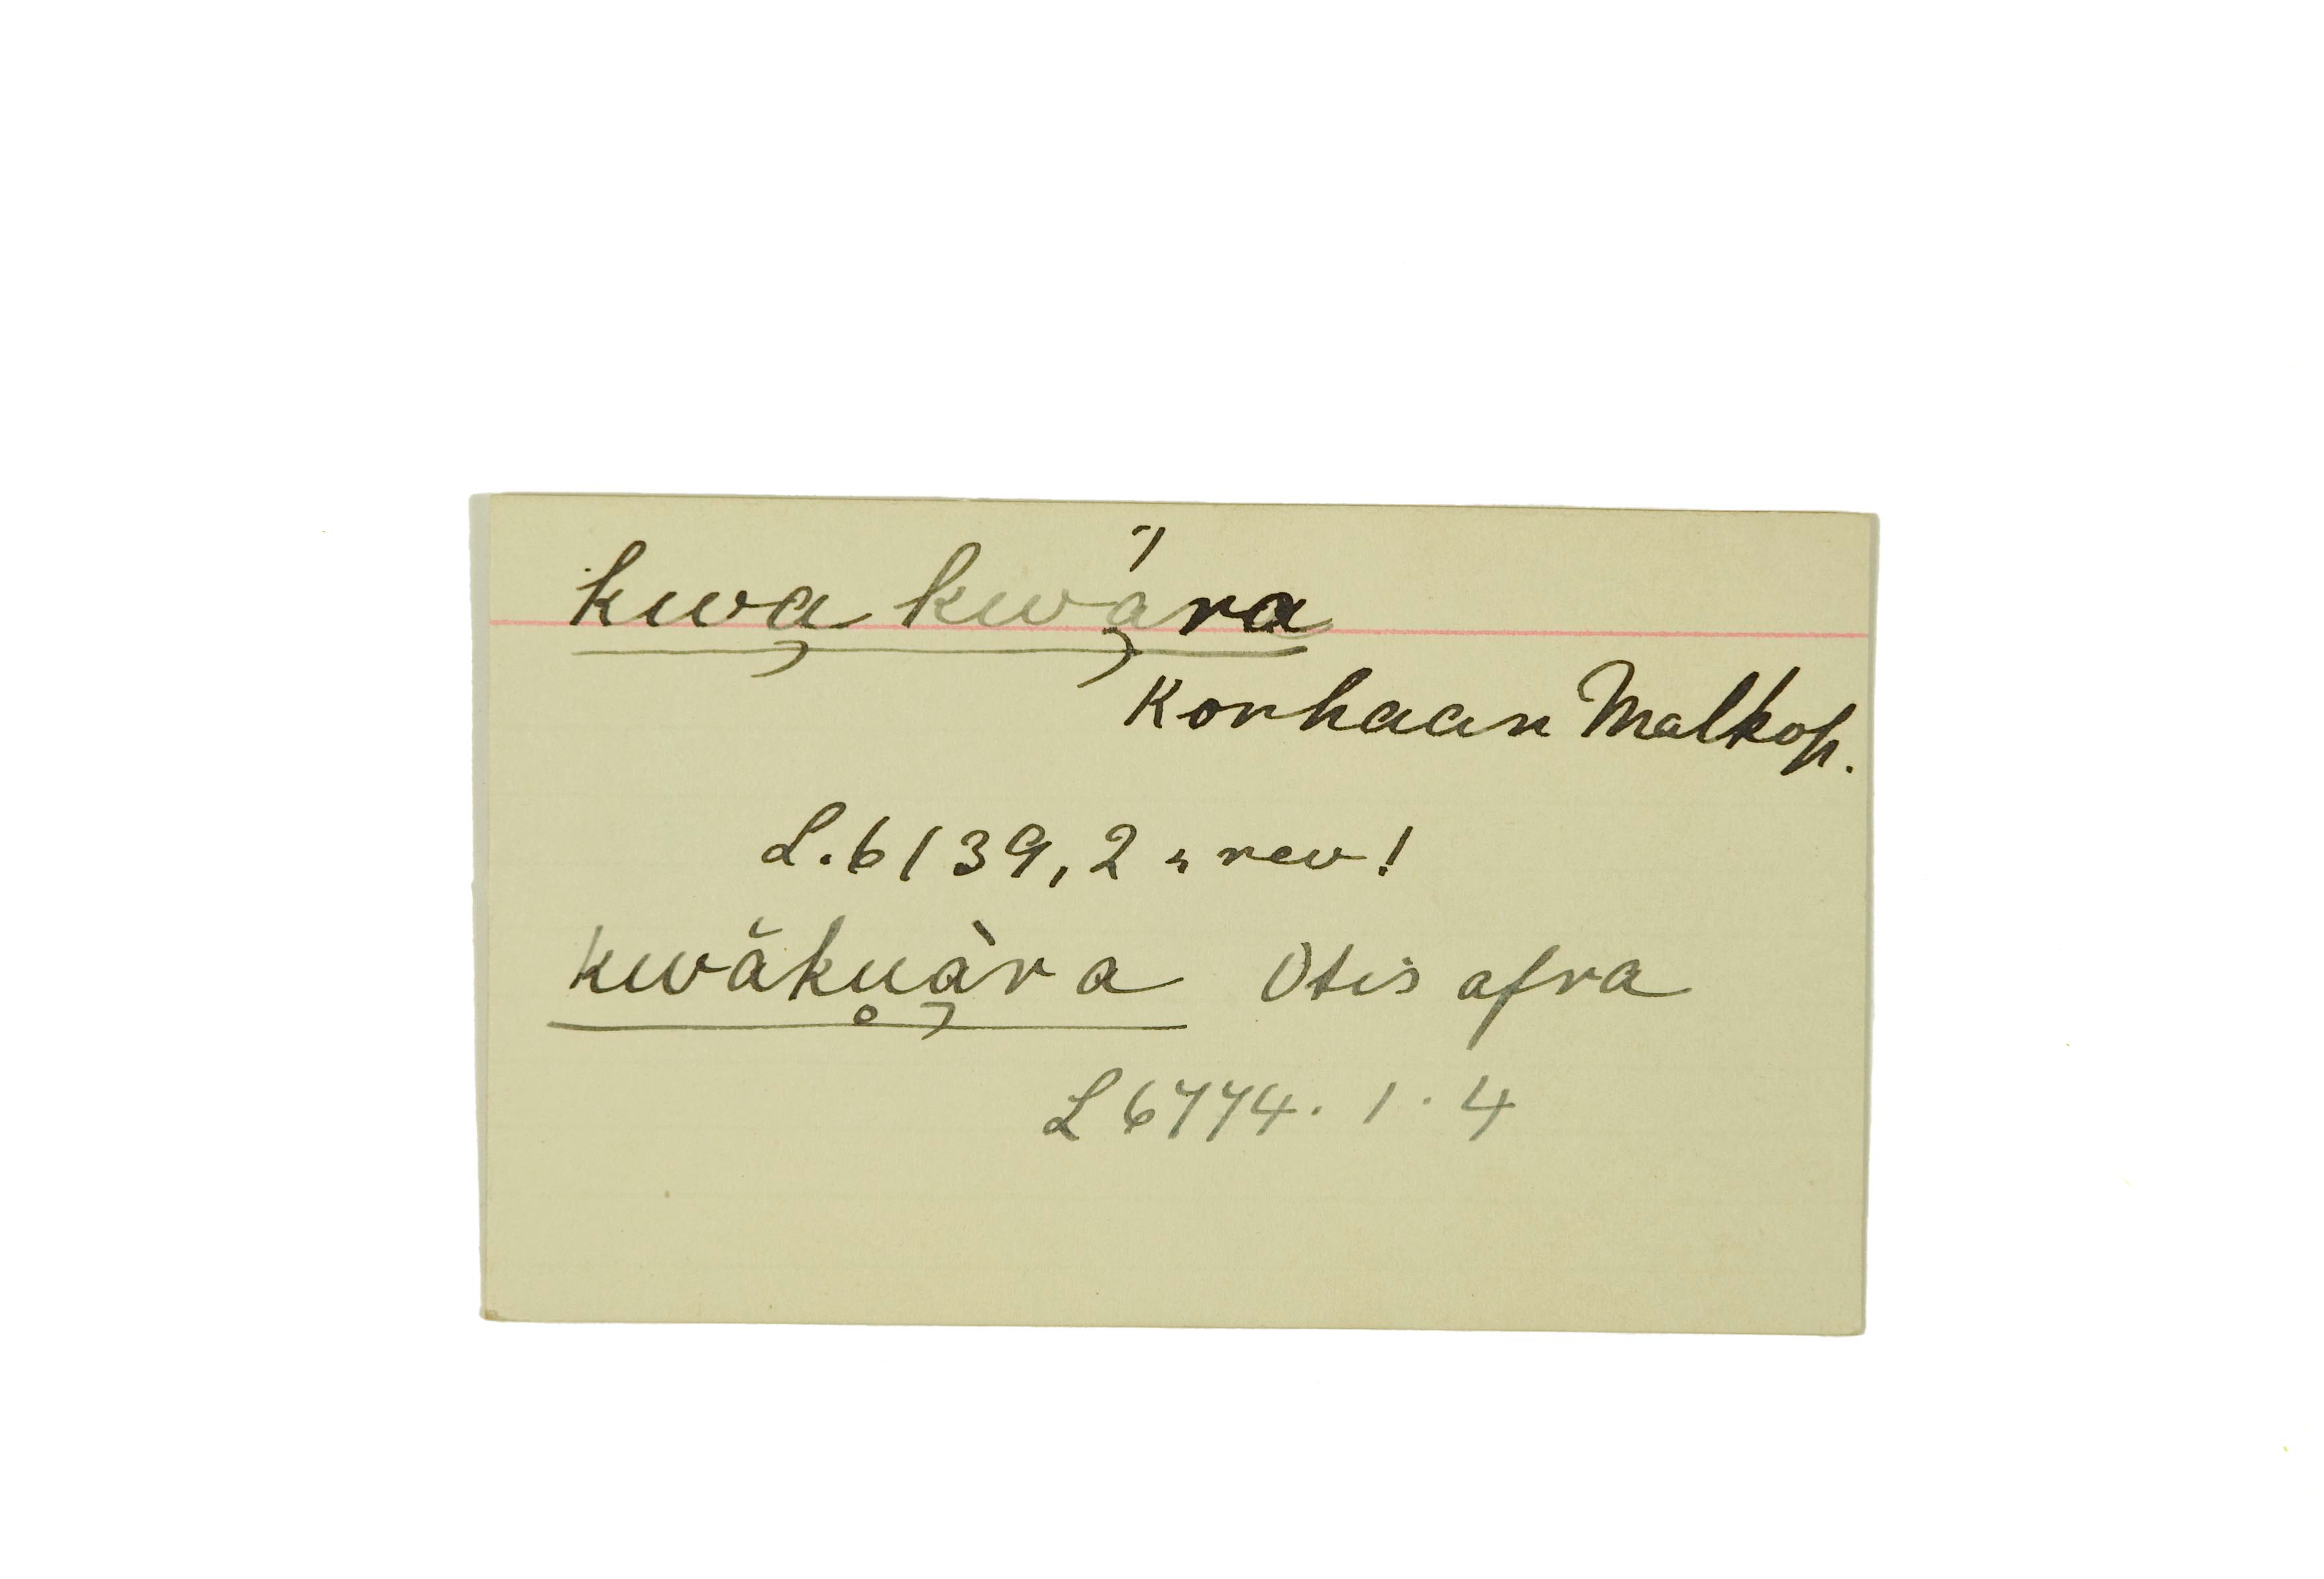 kwa̦ kwá̦ra
Korhaan Malkop.
L.6139,2 " rev!
kwăku̥à̦ra Otis afra
L 6774. 1. 4